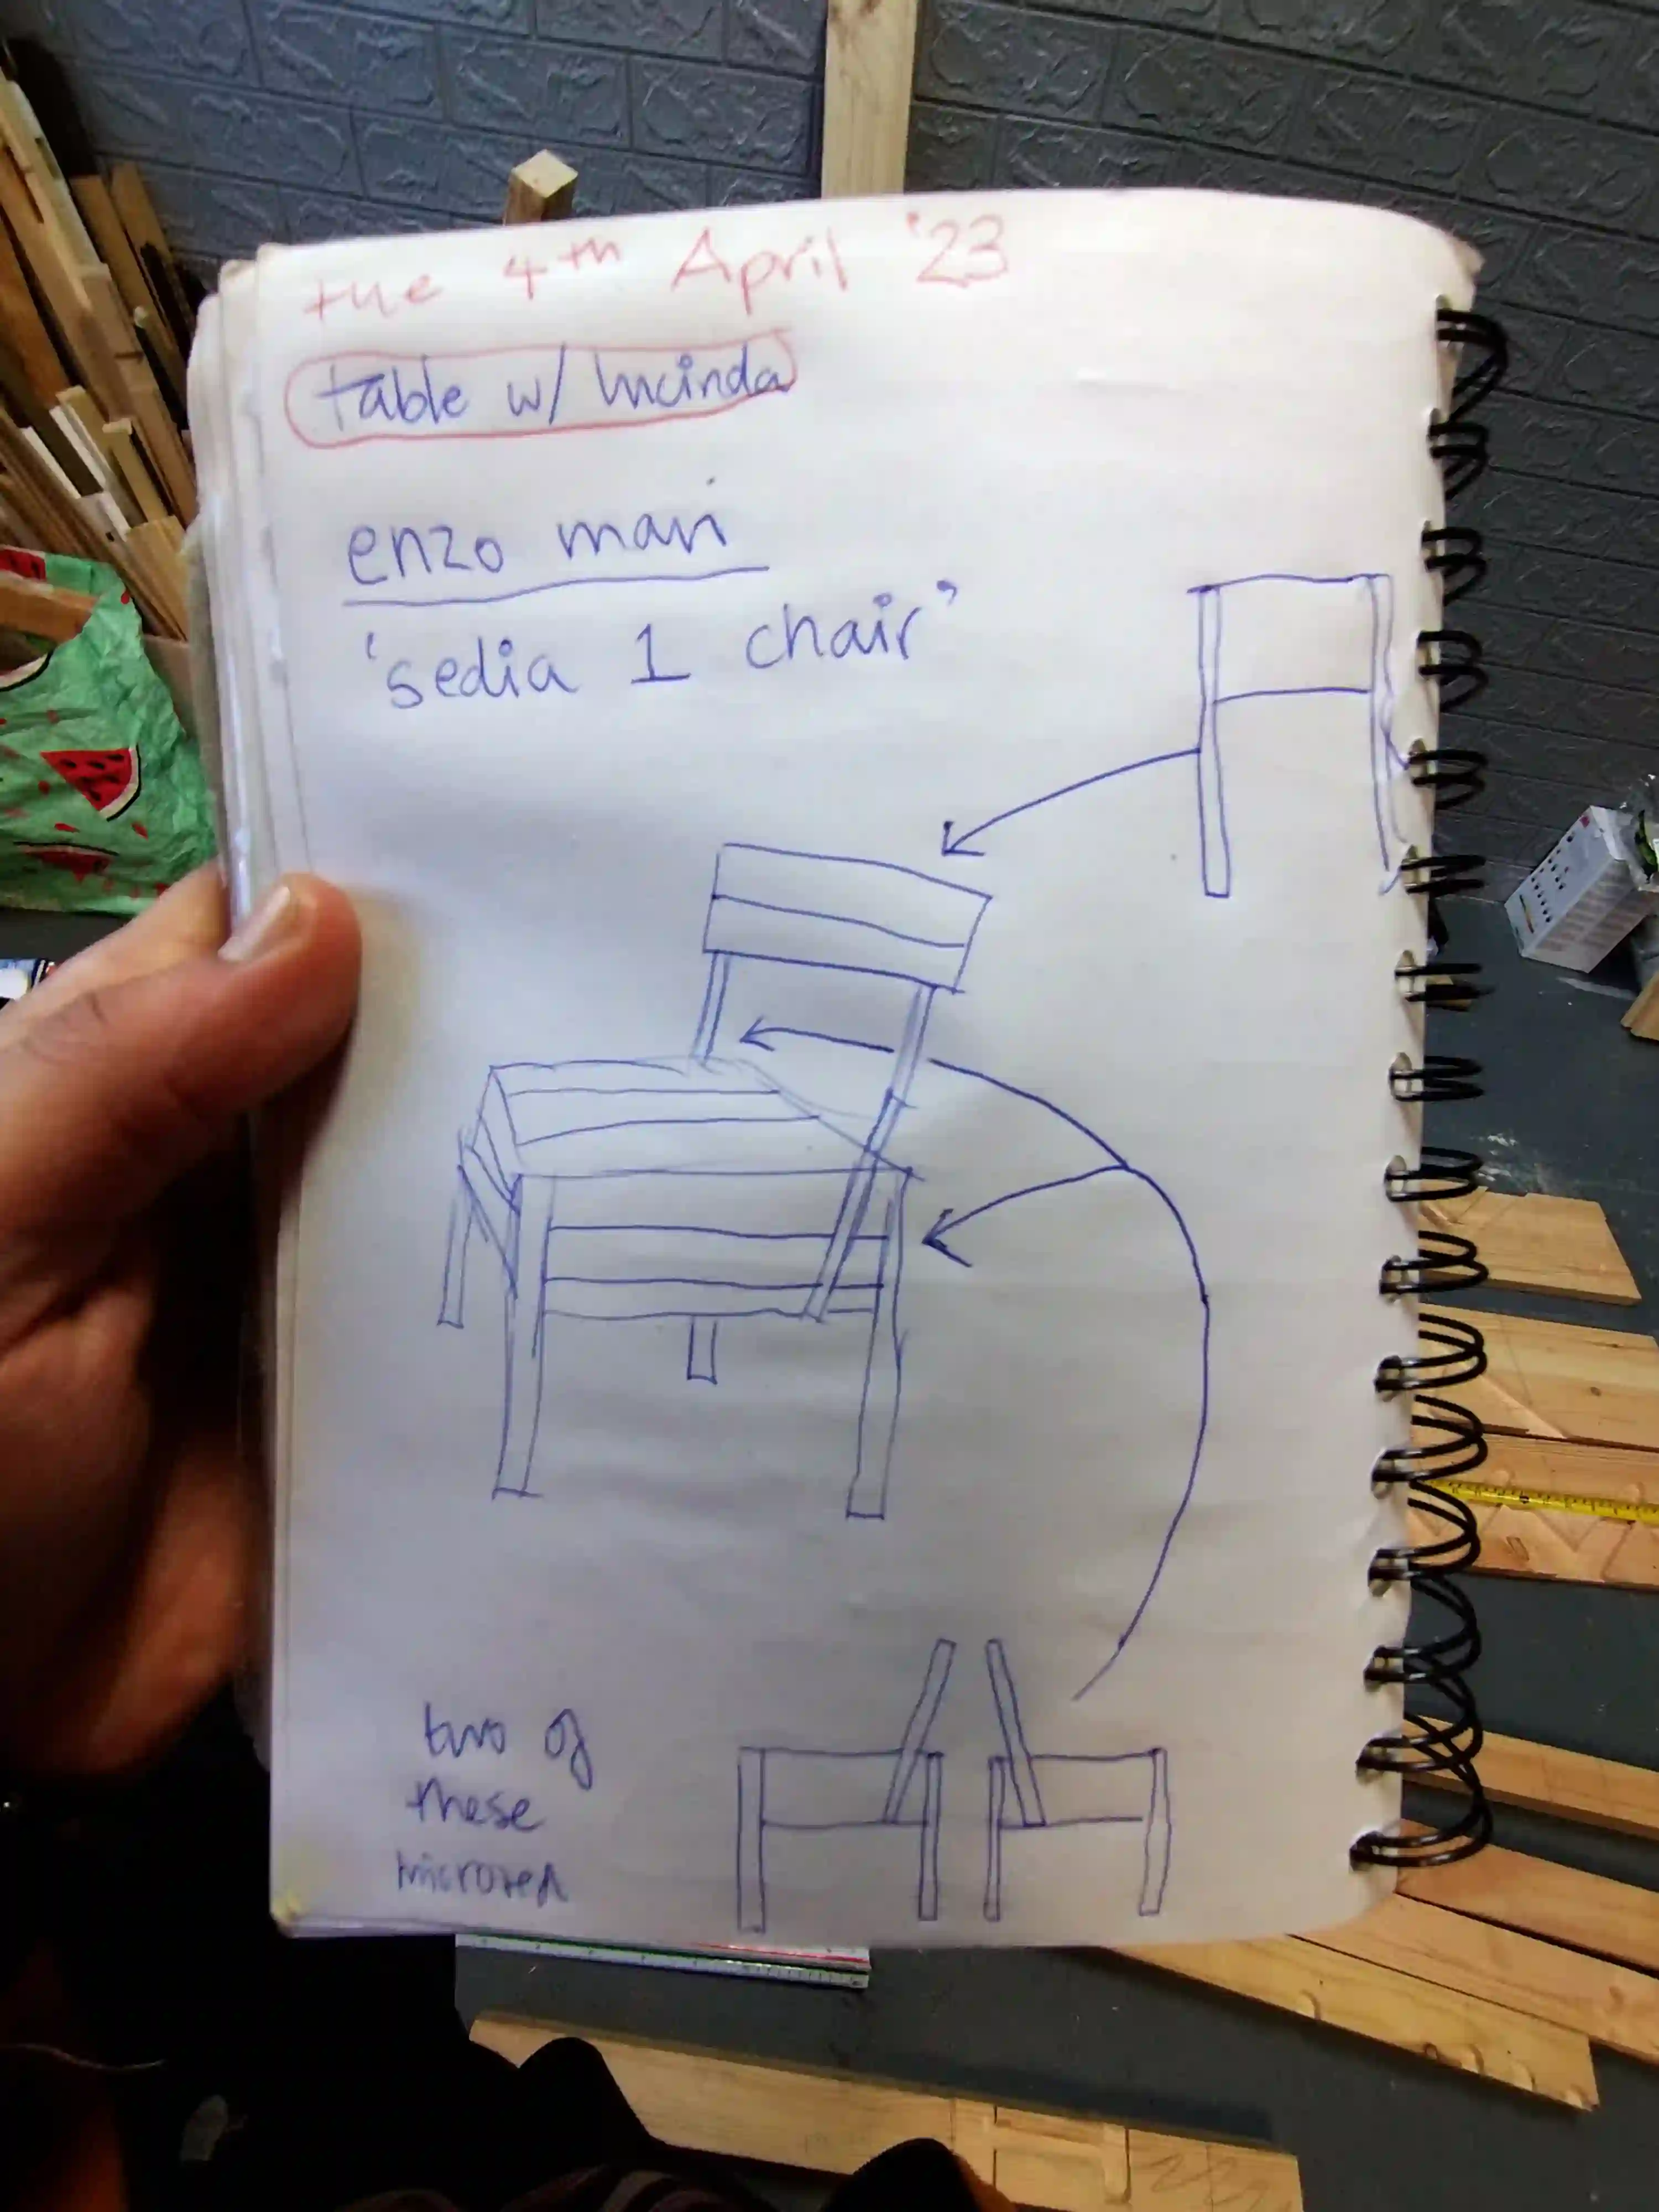 tue 4th April '23
table w/ lucinda
enzo mari
'sedia 1 chair'
two of
these
mirrored